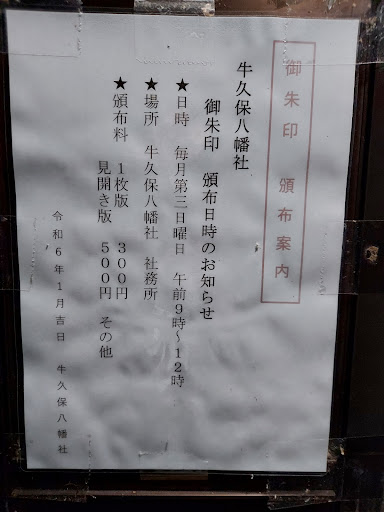 御朱印 頒布案内
牛久保八幡社
御朱印 頒布日時のお知らせ
★日時 毎月第三日曜日 午前9時~12時
★場所 牛久保八幡社 社務所
★頒布料 1枚版 300円
見開き版 500円 その他
令和6年1月吉日 牛久保八幡社